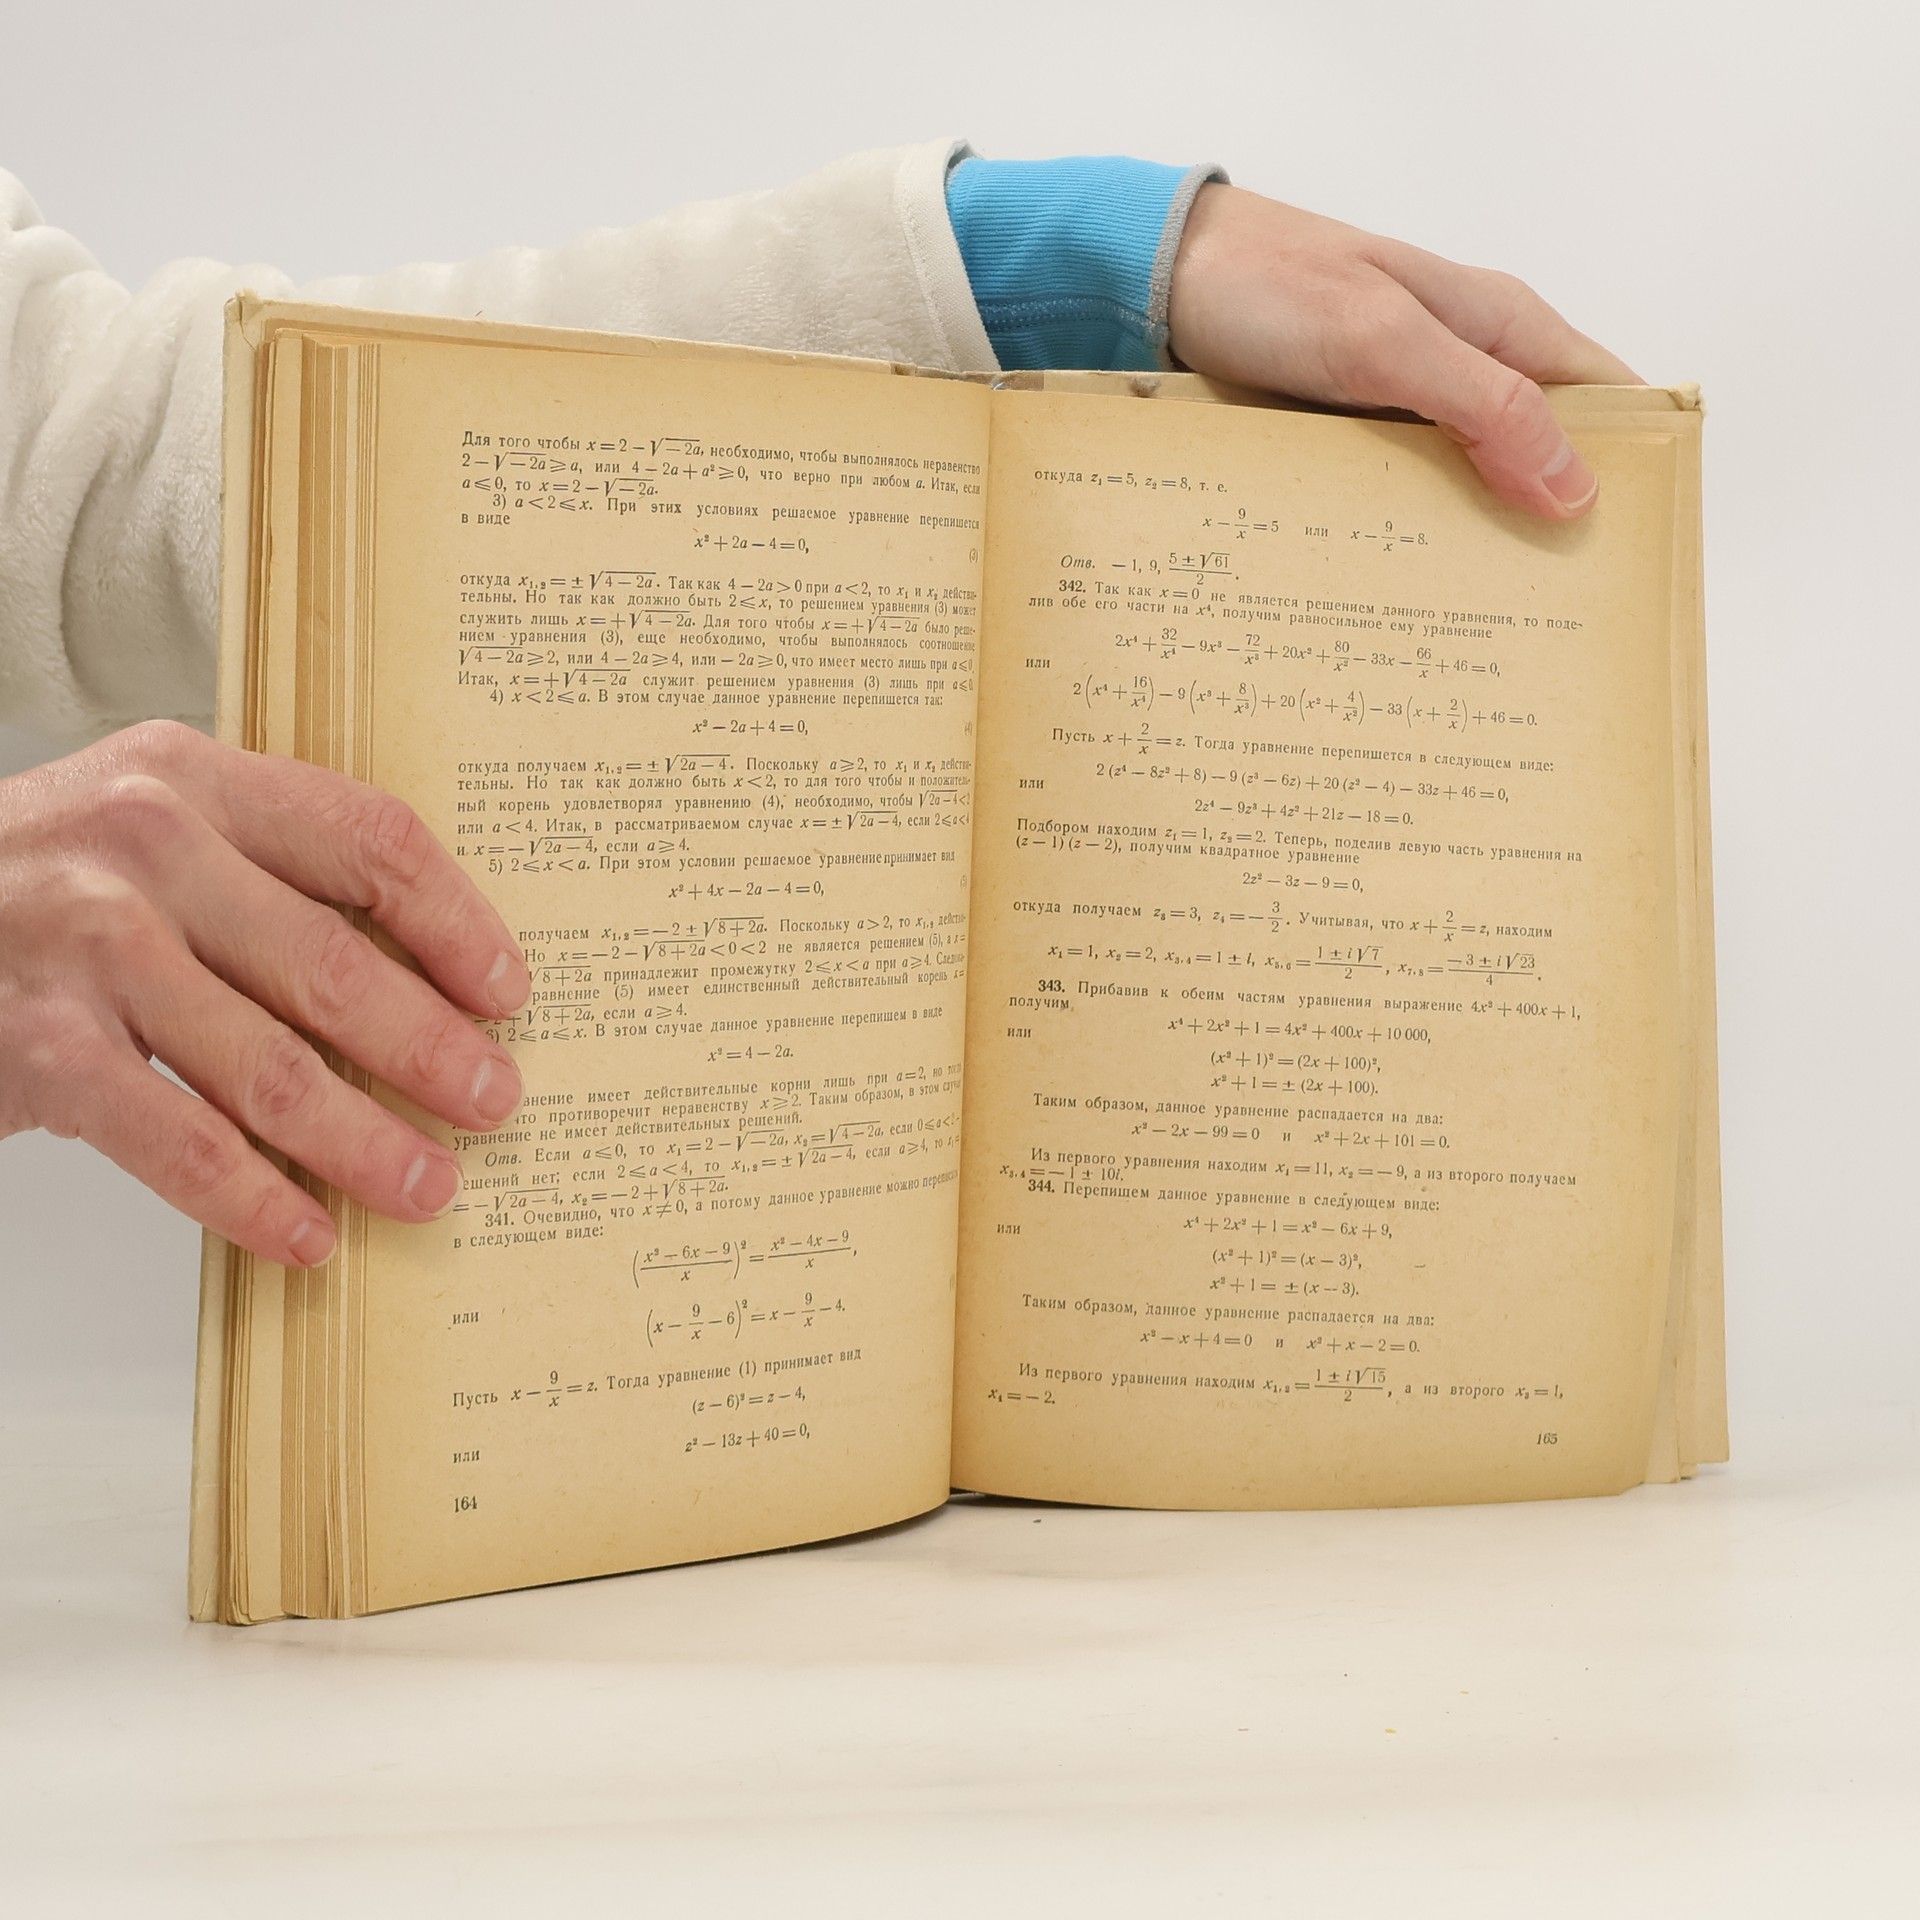 Для того чтобы x = 2 − √−2a, необходимо, чтобы выполнялось неравенство
2 − √−2a ⩾ a, или 4 − 2a + a² ⩾ 0, что верно при любом a. Итак, если
a ⩽ 0, то x = 2 − √−2a.
3) a < 2 ⩽ x. При этих условиях решаемое уравнение перепишется
в виде
x² + 2a − 4 = 0, (3)
откуда x₁,₂ = ± √4 − 2a. Так как 4 − 2a > 0 при a < 2, то x₁ и x₂ действи-
тельны. Но так как должно быть 2 ⩽ x, то решением уравнения (3) может
служить лишь x = + √4 − 2a. Для того чтобы x = + √4 − 2a было реше-
нием уравнения (3), еще необходимо, чтобы выполнялось соотношение
√4 − 2a ⩾ 2, или 4 − 2a ⩾ 4, или − 2a ⩾ 0, что имеет место лишь при a ⩽ 0.
Итак, x = + √4 − 2a служит решением уравнения (3) лишь при a ⩽ 0.
4) x < 2 ⩽ a. В этом случае данное уравнение перепишется так:
x² − 2a + 4 = 0, (4)
откуда получаем x₁,₂ = ± √2a − 4. Поскольку a ⩾ 2, то x₁ и x₂ действи-
тельны. Но так как должно быть x < 2, то для того чтобы и положитель-
ный корень удовлетворял уравнению (4), необходимо, чтобы √2a − 4 < 2
или a < 4. Итак, в рассматриваемом случае x = ± √2a − 4, если 2 ⩽ a < 4
и x = − √2a − 4, если a ⩾ 4.
5) 2 ⩽ x < a. При этом условии решаемое уравнение принимает вид
x² + 4x − 2a − 4 = 0, (5)
получаем x₁,₂ = − 2 ± √8 + 2a. Поскольку a > 2, то x₁,₂ действи-
Но x = − 2 − √8 + 2a < 0 < 2 не является решением (5), а x =
√8 + 2a принадлежит промежутку 2 ⩽ x < a при a ⩾ 4. Следова-
равнение (5) имеет единственный действительный корень x =
− 2 + √8 + 2a, если a ⩾ 4.
6) 2 ⩽ a ⩽ x. В этом случае данное уравнение перепишем в виде
x² = 4 − 2a.
анение имеет действительные корни лишь при a = 2, но тогда
что противоречит неравенству x ⩾ 2. Таким образом, в этом случае
уравнение не имеет действительных решений.
Отв. Если a ⩽ 0, то x₁ = 2 − √−2a, x₂ = √4 − 2a, если 0 ⩽ a < 2 −
ешений нет; если 2 ⩽ a < 4, то x₁,₂ = ± √2a − 4, если a ⩾ 4, то x₁ =
= − √2a − 4, x₂ = − 2 + √8 + 2a.
341. Очевидно, что x ≠ 0, а потому данное уравнение можно переписать
в следующем виде:
((x² − 6x − 9)/x)² = (x² − 4x − 9)/x,
или
(x − 9/x − 6)² = x − 9/x − 4.
Пусть x − 9/x = z. Тогда уравнение (1) принимает вид
(z − 6)² = z − 4,
или
z² − 13z + 40 = 0,
164
откуда z₁ = 5, z₂ = 8, т. е.
x − 9/x = 5 или x − 9/x = 8.
Отв. − 1, 9, (5 ± √61)/2.
342. Так как x = 0 не является решением данного уравнения, то поде-
лив обе его части на x⁴, получим равносильное ему уравнение
2x⁴ + 32/x⁴ − 9x³ − 72/x³ + 20x² + 80/x² − 33x − 66/x + 46 = 0,
или
2 (x⁴ + 16/x⁴) − 9 (x³ + 8/x³) + 20 (x² + 4/x²) − 33 (x + 2/x) + 46 = 0.
Пусть x + 2/x = z. Тогда уравнение перепишется в следующем виде:
2 (z⁴ − 8z² + 8) − 9 (z³ − 6z) + 20 (z² − 4) − 33z + 46 = 0,
или
2z⁴ − 9z³ + 4z² + 21z − 18 = 0.
Подбором находим z₁ = 1, z₂ = 2. Теперь, поделив левую часть уравнения на
(z − 1) (z − 2), получим квадратное уравнение
2z² − 3z − 9 = 0,
откуда получаем z₃ = 3, z₄ = − 3/2. Учитывая, что x + 2/x = z, находим
x₁ = 1, x₂ = 2, x₃,₄ = 1 ± i, x₅,₆ = (1 ± i√7)/2, x₇,₈ = (−3 ± i√23)/4.
343. Прибавив к обеим частям уравнения выражение 4x² + 400x + 1,
получим
x⁴ + 2x² + 1 = 4x² + 400x + 10 000,
или
(x² + 1)² = (2x + 100)²,
x² + 1 = ± (2x + 100).
Таким образом, данное уравнение распадается на два:
x² − 2x − 99 = 0 и x² + 2x + 101 = 0.
Из первого уравнения находим x₁ = 11, x₂ = − 9, а из второго получаем
x₃,₄ = − 1 ± 10i.
344. Перепишем данное уравнение в следующем виде:
x⁴ + 2x² + 1 = x² − 6x + 9,
или
(x² + 1)² = (x − 3)²,
x² + 1 = ± (x − 3).
Таким образом, данное уравнение распадается на два:
x² − x + 4 = 0 и x² + x − 2 = 0.
Из первого уравнения находим x₁,₂ = (1 ± i√15)/2, а из второго x₃ = 1,
x₄ = − 2.
165